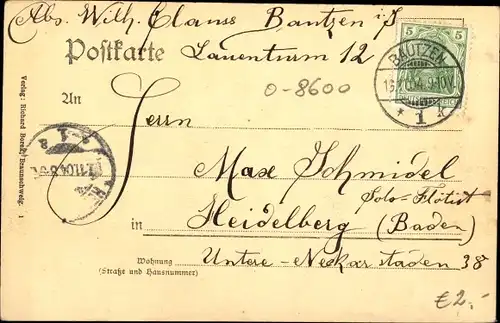 Abs. Wilh. Clauss Bautzen i/S
Postkarte Lauentium 12
5 5
BAUTZEN
04. 9-10V
* 1
0-8600
An
Herrn
Max Schmidel
Solo-Flötist
in Heidelberg (Baden)
Wohnung
(Straße und Hausnummer)
Untere-Neckarstaden 38
11.04.
Verlag: Richard Borek, Braunschweig. 1
€2.-